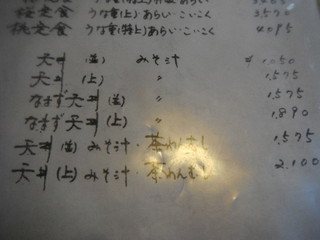 桜定食 うな重(上)あらい・こいこく 3.570
桃定食 うな重(特上)あらい・こいこく 4.095
天丼 (並) みそ汁 ¥1.050
天丼 (上) 〃 1.575
なまず天丼 (並) 〃 1.575
なまず天丼 (上) 〃 1.890
天丼 (並) みそ汁・茶わんむし 1.575
天丼 (上) みそ汁・茶わんむし 2.100